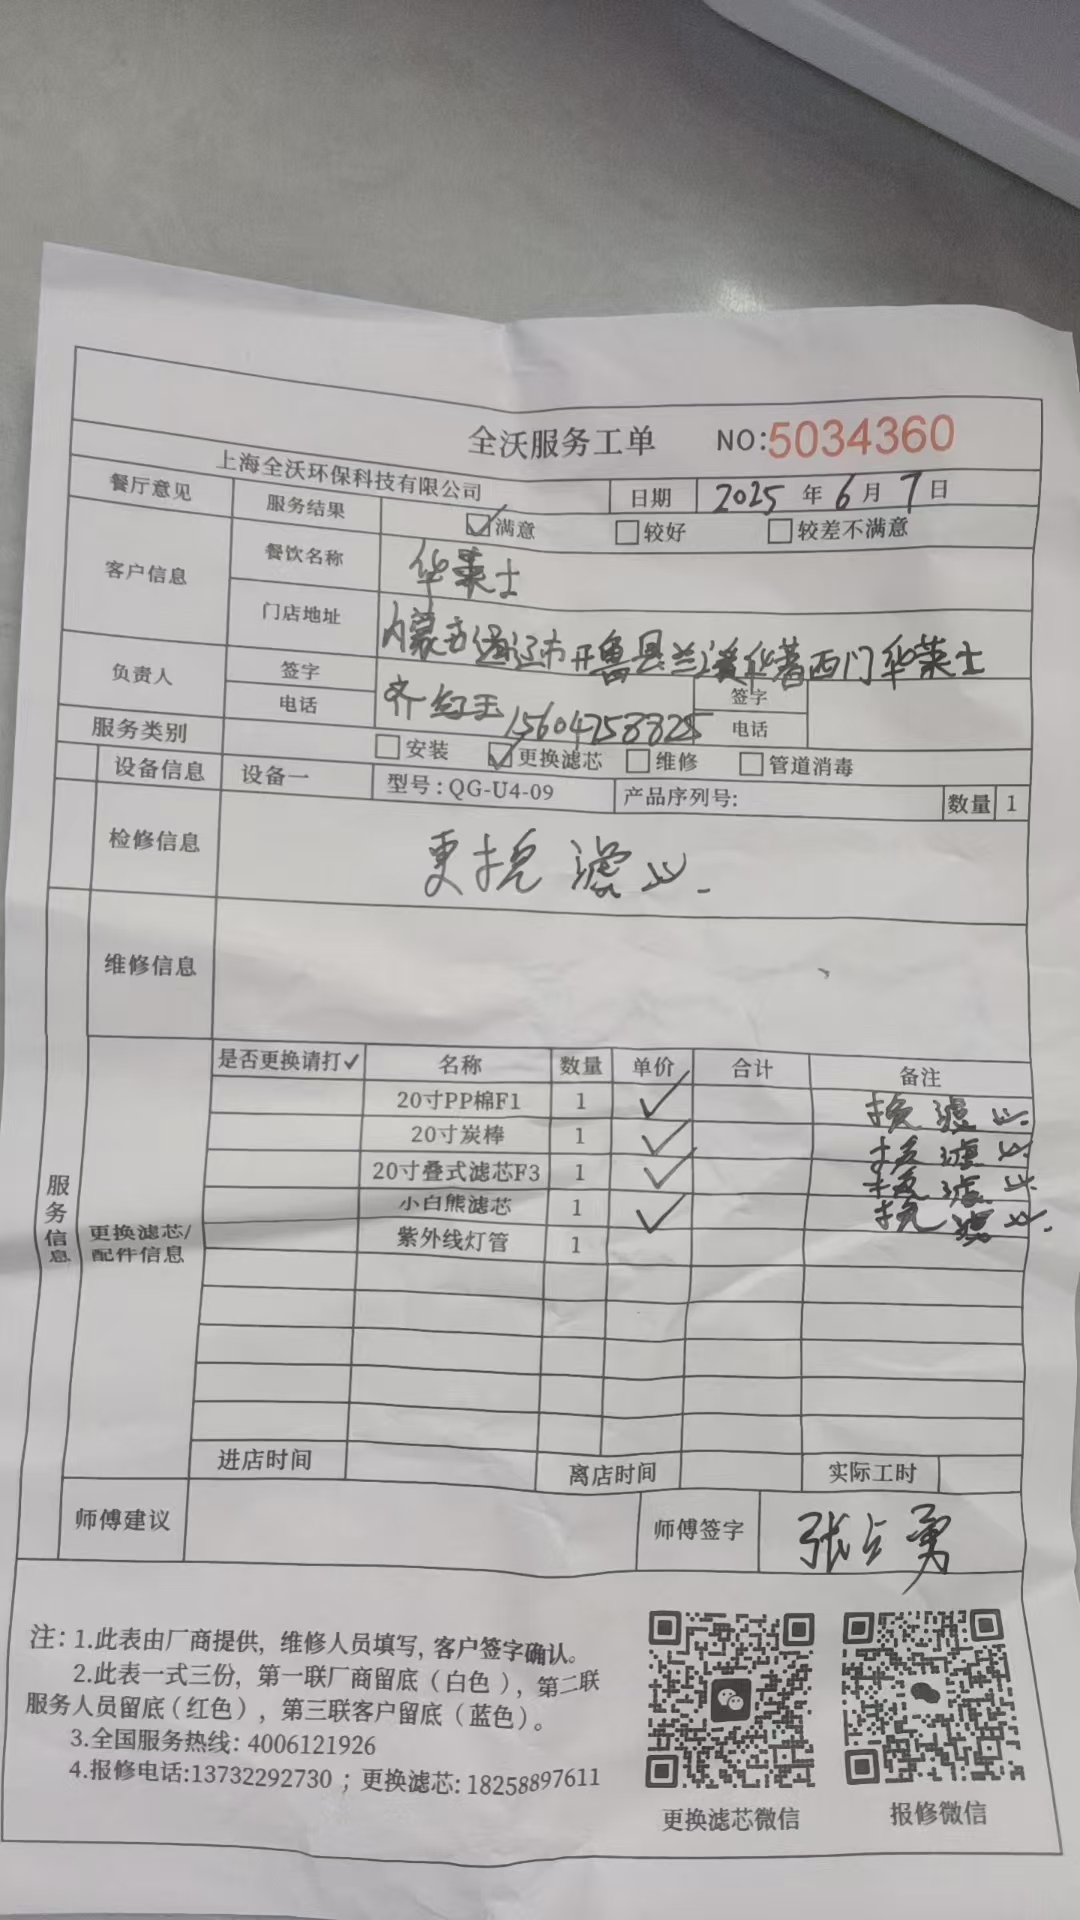 全沃服务工单 NO:5034360
上海全沃环保科技有限公司 日期 2025 年 6 月 7 日
餐厅意见 服务结果 满意 较好 较差不满意
客户信息 餐饮名称 华莱士
门店地址 内蒙古通辽市开鲁县兰溪 西门华莱士
负责人 签字 齐红玉 签字
电话 电话
服务类别 安装 更换滤芯 维修 管道消毒
设备信息 设备一 型号:QG-U4-09 产品序列号: 数量 1
检修信息 更换滤芯.
维修信息
服务信息
更换滤芯/配件信息
是否更换请打✓ 名称 数量 单价 合计 备注
20寸PP棉F1 1 ✓ 换滤芯.
20寸炭棒 1 ✓ 换滤芯
20寸叠式滤芯F3 1 ✓ 换滤芯
小白熊滤芯 1 ✓ 换滤芯.
紫外线灯管 1
进店时间 离店时间 实际工时
师傅建议 师傅签字 张占勇
注: 1.此表由厂商提供, 维修人员填写, 客户签字确认。
2.此表一式三份, 第一联厂商留底(白色), 第二联
服务人员留底(红色), 第三联客户留底(蓝色)。
3.全国服务热线: 4006121926
4.报修电话:13732292730 ; 更换滤芯: 18258897611
更换滤芯微信 报修微信